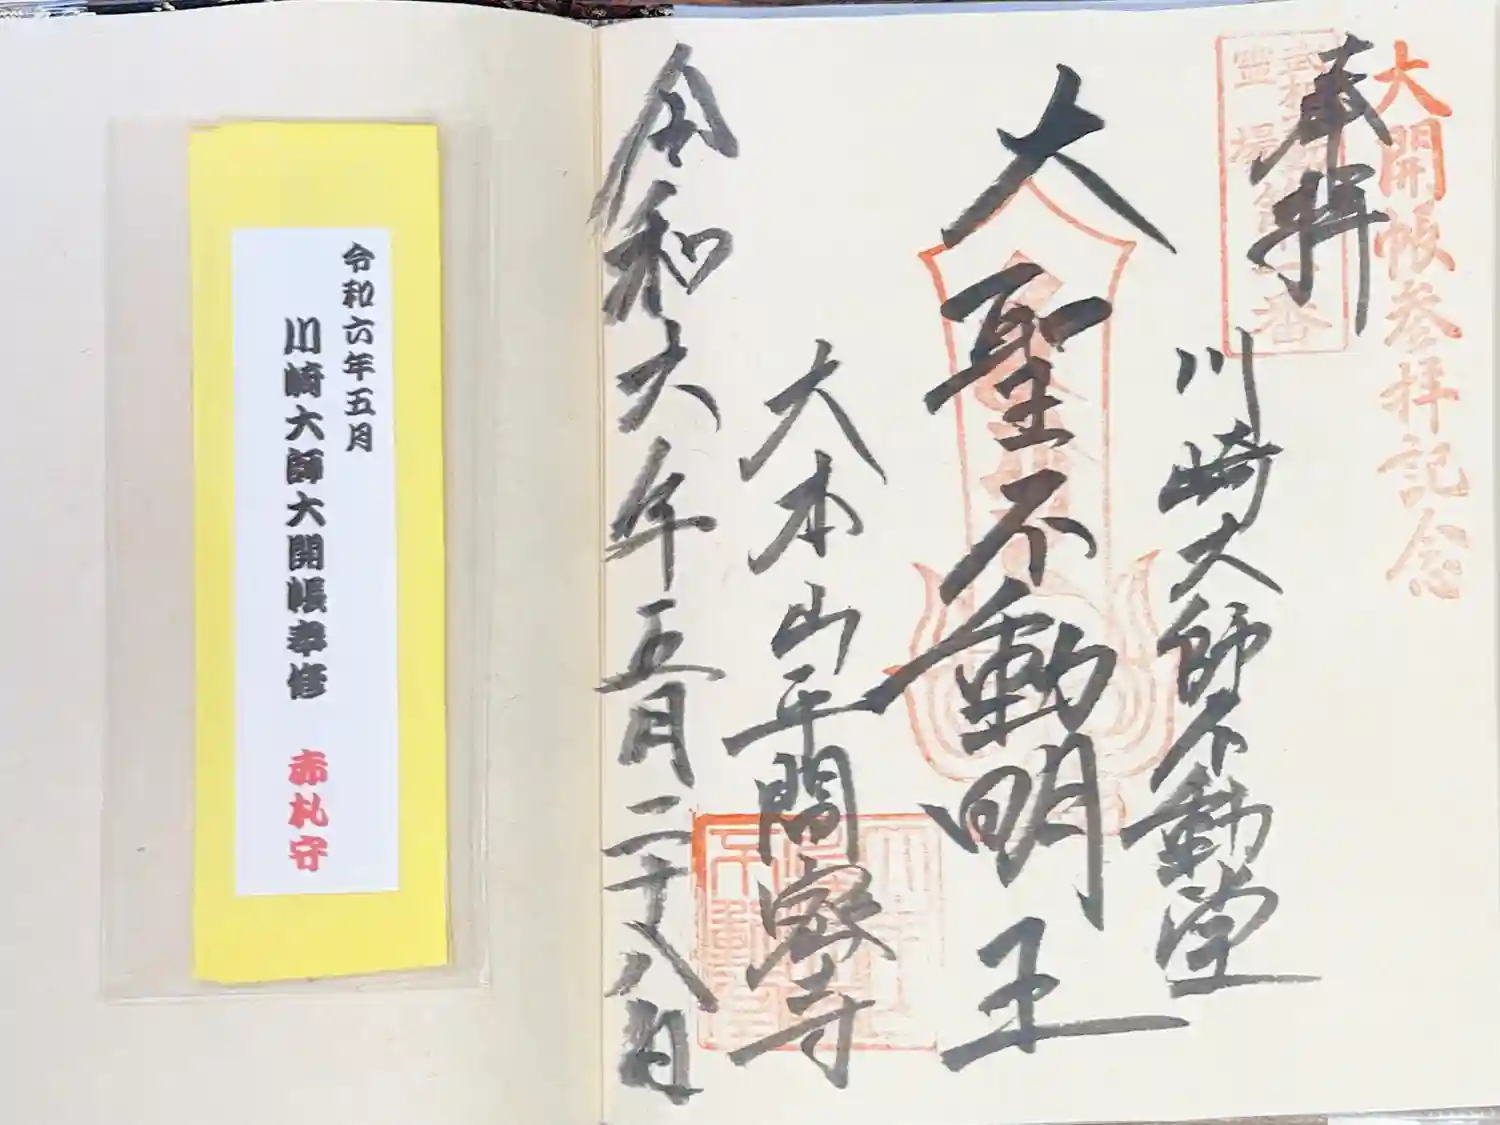 大開帳参拝記念
奉拝
霊場
番
川崎大師不動堂
大聖不動明王
大本山平間寺
令和六年五月二十八日
令和六年五月
川崎大師大開帳奉修 赤札守